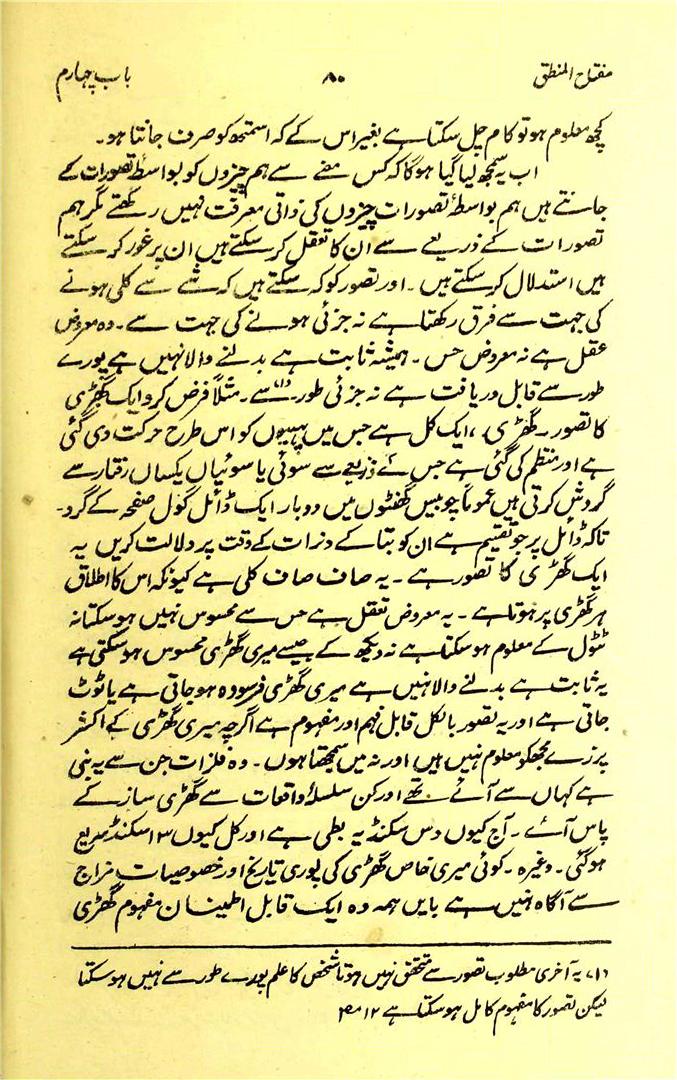 مفتاح المنطق ۸۰ باب چہارم
کچھ معلوم ہو تو کام چل سکتا ہے بغیر اس کے کہ اسمتھ کو صرف جانتا ہو۔
اب یہ سمجھ لیا گیا ہوگا کہ کس معنے سے ہم چیزوں کو بواسطۂ تصورات کے
جانتے ہیں ہم بواسطۂ تصورات چیزوں کی ذاتی معرفت نہیں رکھتے مگر ہم
تصورات کے ذریعے سے ان کا تعقل کر سکتے ہیں ان پر غور کر سکتے
ہیں استدلال کر سکتے ہیں۔ اور تصور کو کہ سکتے ہیں کہ شے سے کلی ہونے
کی جہت سے فرق رکھتا ہے نہ جزئی ہونے کی جہت سے۔ وہ معروض
عقل ہے نہ معروض حس۔ ہمیشہ ثابت ہے بدلنے والا نہیں ہے پورے
طور سے قابل دریافت ہے نہ جزئی طور (۱) سے۔ مثلاً فرض کرو ایک گھڑی
کا تصور۔ گھڑی، ایک کل ہے جس میں پہیوں کو اس طرح حرکت دی گئی
ہے اور منظم کی گئی ہے جس کے ذریعے سے سوئی یا سوئیاں یکساں رفتار سے
گردش کرتی ہیں عموماً چوبیس گھنٹوں میں دوبار ایک ڈائل گول صفحہ کے گرد۔
تاکہ ڈائل پر جو تقیم ہے ان کو بتا کے دنرات کے وقت پر دلالت کریں یہ
ایک گھڑی کا تصور ہے۔ یہ صاف صاف کلی ہے کیونکہ اس کا اطلاق
ہر گھڑی پر ہوتا ہے۔ یہ معروض تعقل ہے حس سے محسوس نہیں ہو سکتا نہ
ٹٹول کے معلوم ہو سکتا ہے نہ دیکھ کے جیسے میری گھڑی محسوس ہو سکتی ہے
یہ ثابت ہے بدلنے والا نہیں ہے میری گھڑی فرسودہ ہو جاتی ہے یا ٹوٹ
جاتی ہے اور یہ تصور بالکل قابل فہم اور مفہوم ہے اگرچہ میری گھڑی کے اکثر
پرزے مجھکو معلوم نہیں ہیں اور نہ میں سمجھتا ہوں۔ وہ فلزات جن سے یہ بنی
ہے کہاں سے آئے تھے اور کن سلسلۂ واقعات سے گھڑی ساز کے
پاس آئے۔ آج کیوں دس سکنڈ یہ بطی ہے اور کل کیوں ۱۳ سکنڈ سریع
ہو گئی۔ وغیرہ۔ کوئی میری خاص گھڑی کی پوری تاریخ اور خصوصیات مزاج
سے آگاہ نہیں ہے بایں ہمہ وہ ایک قابل اطینان مفہوم گھڑی
(۱) یہ آخری مطلوب تصور سے متحقق نہیں ہوتا شخص کا علم پورے طور سے نہیں ہو سکتا
لیکن تصور کا مفہوم کامل ہو سکتا ہے ۱۲